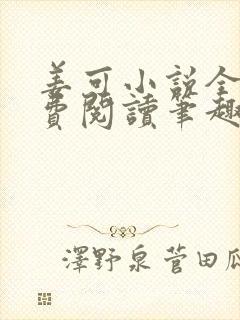 姜可小說全
費閱讀筆趣
澤野泉菅田瓜